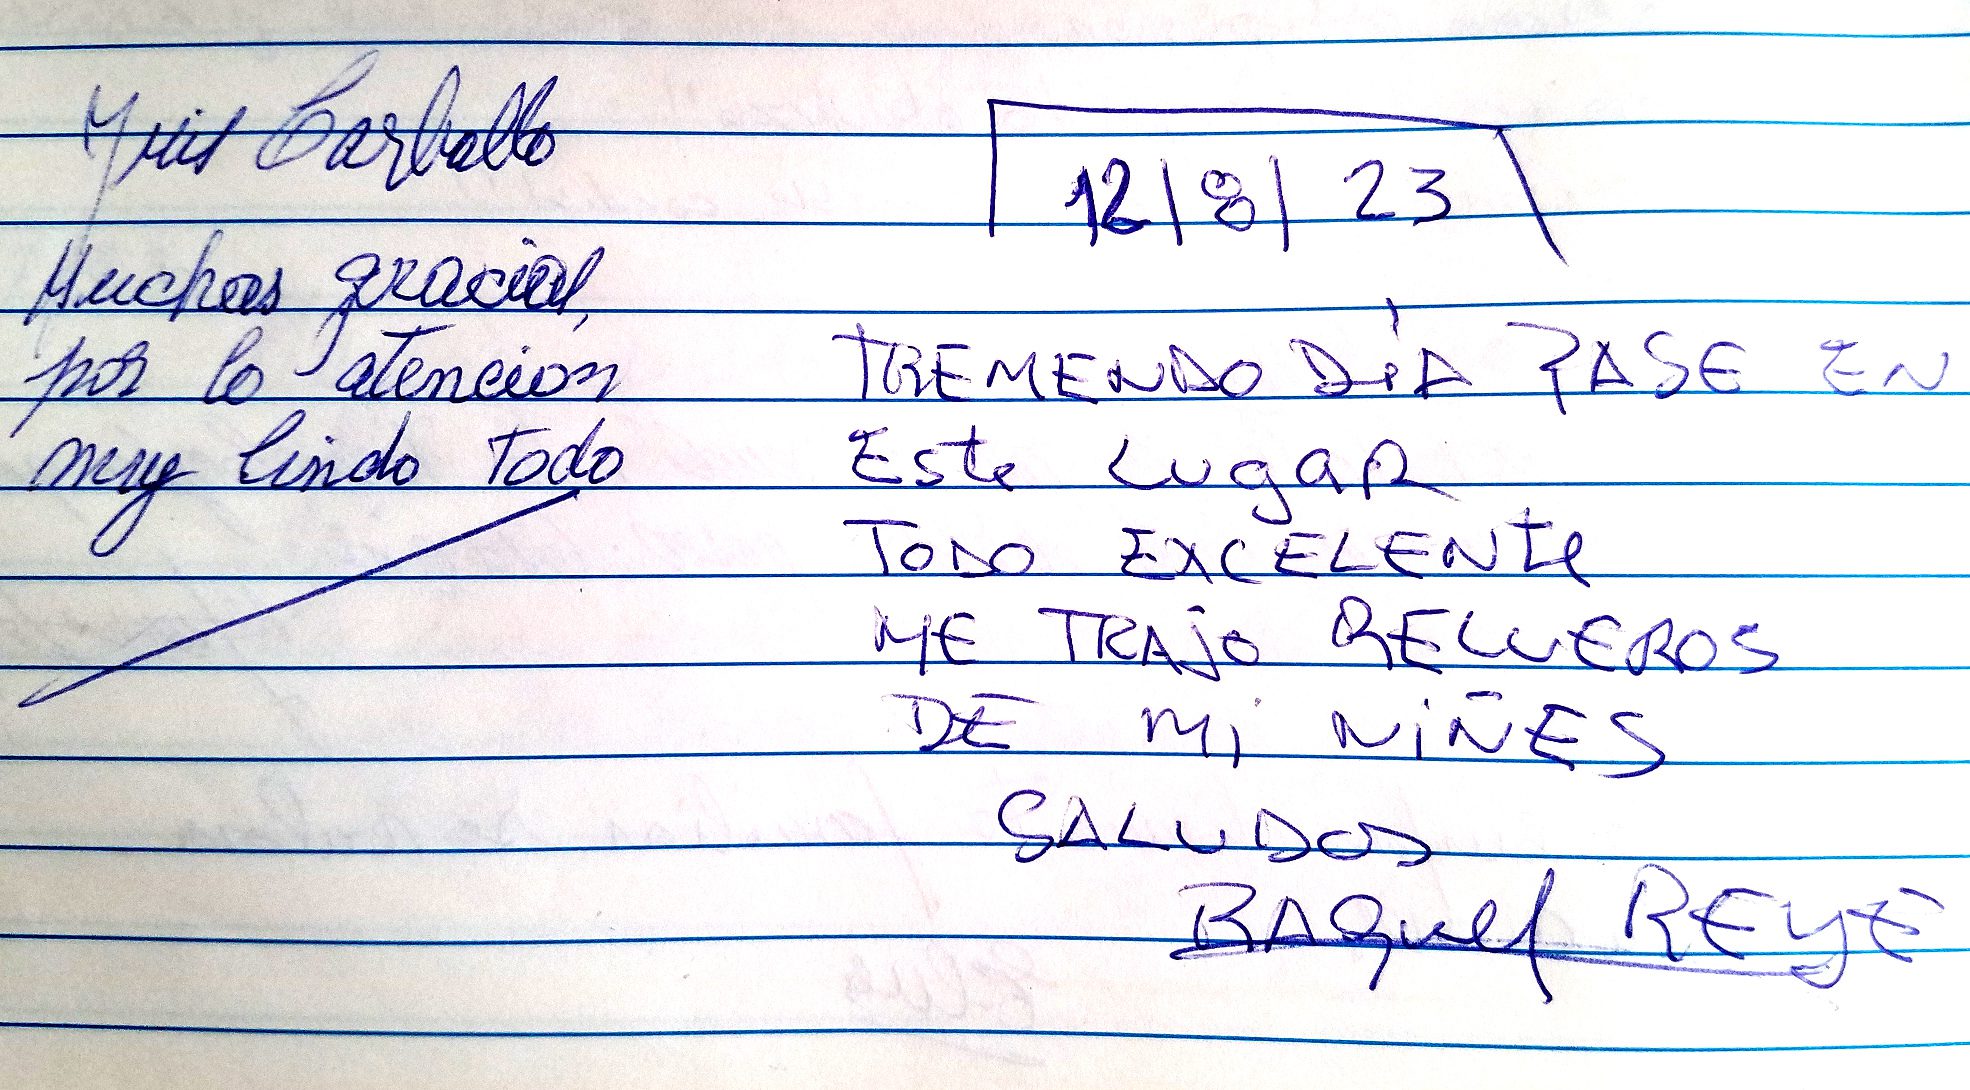 Yris Carballo
Muchas gracias,
por la atencion
muy lindo Todo
12/8/23
TREMENDO DÍA PASE EN
Este Lugar
TODO EXCELENte
ME TRAJO RECUEROS
DE Mi NiÑES
SALUDOS
RAquel REYE